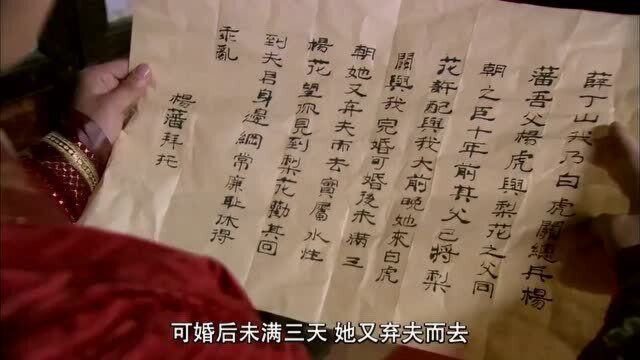 薛丁山我乃白虎關總兵楊
藩吾父楊虎與梨花之父同
朝之臣十年前其父已將梨
花許配與我大前晚她來白虎
關與我完婚可婚後未滿三
朝她又弃夫而去實屬水性
楊花望你見到梨花勸其回
到夫君身邊綱常廉恥休得
乖亂
楊藩拜托
可婚后未满三天 她又弃夫而去